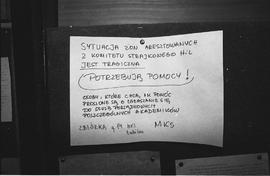 SYTUACJA ŻON ARESZTOWANYCH
Z KOMITETU STRAJKOWEGO H/L
JEST TRAGICZNA
POTRZEBUJĄ POMOCY!
OSOBY, KTÓRE CHCĄ IM POMÓC
PROSZONE SĄ O ZGŁASZANIE SIĘ
DO SŁUŻB PORZĄDKOWYCH
POSZCZEGÓLNYCH AKADEMIKÓW
ZBIÓRKA
MKS